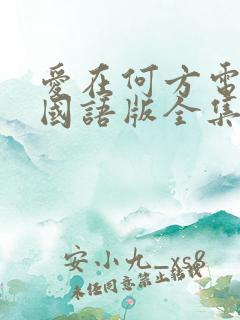 愛在何方電
國語版全集
安小九_xs8
未任同意禁止轉載